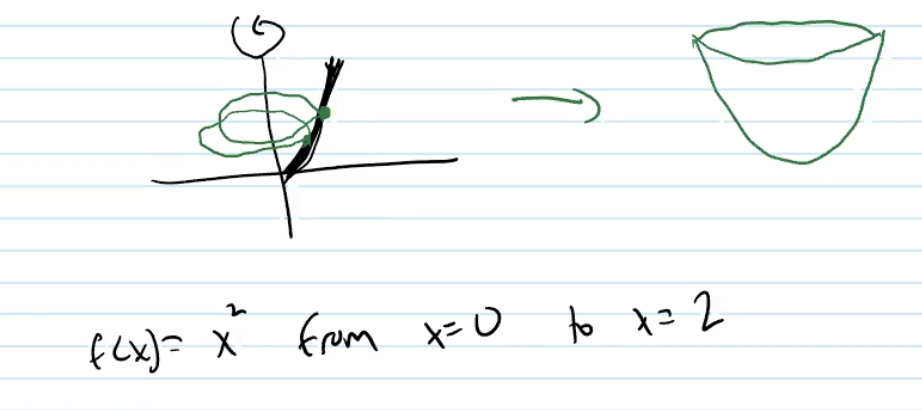 f(x) = x² from x=0 to x=2